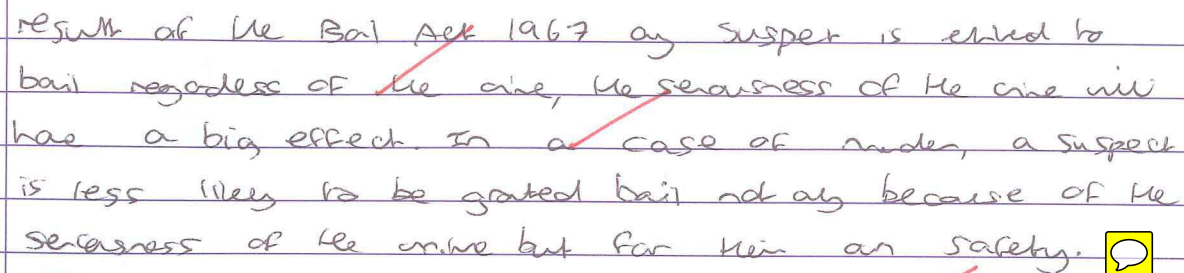 result of the Bail Act 1967 any suspect is entitled to
bail regardless of the crime, the seriousness of the crime will
have a big effect. In a case of murder, a suspect
is less likely to be granted bail not only because of the
seriousness of the crime but for their own safety.